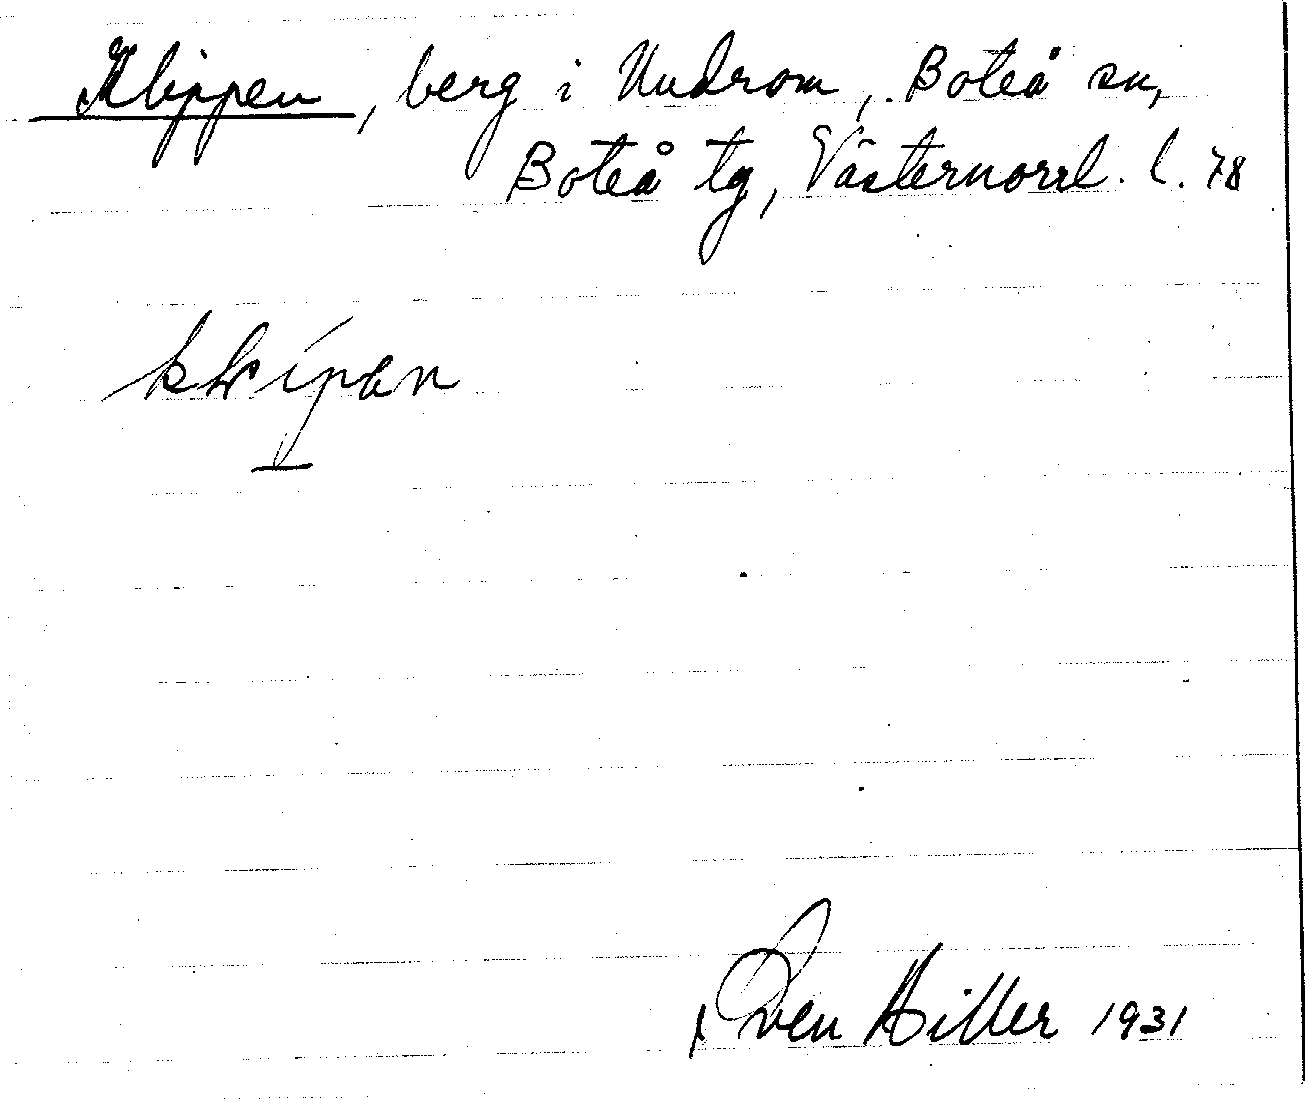 Klippen, berg i Undrom, Boteå sn,
Boteå tg, Västernorrl. l. 78
Sven Hiller 1931